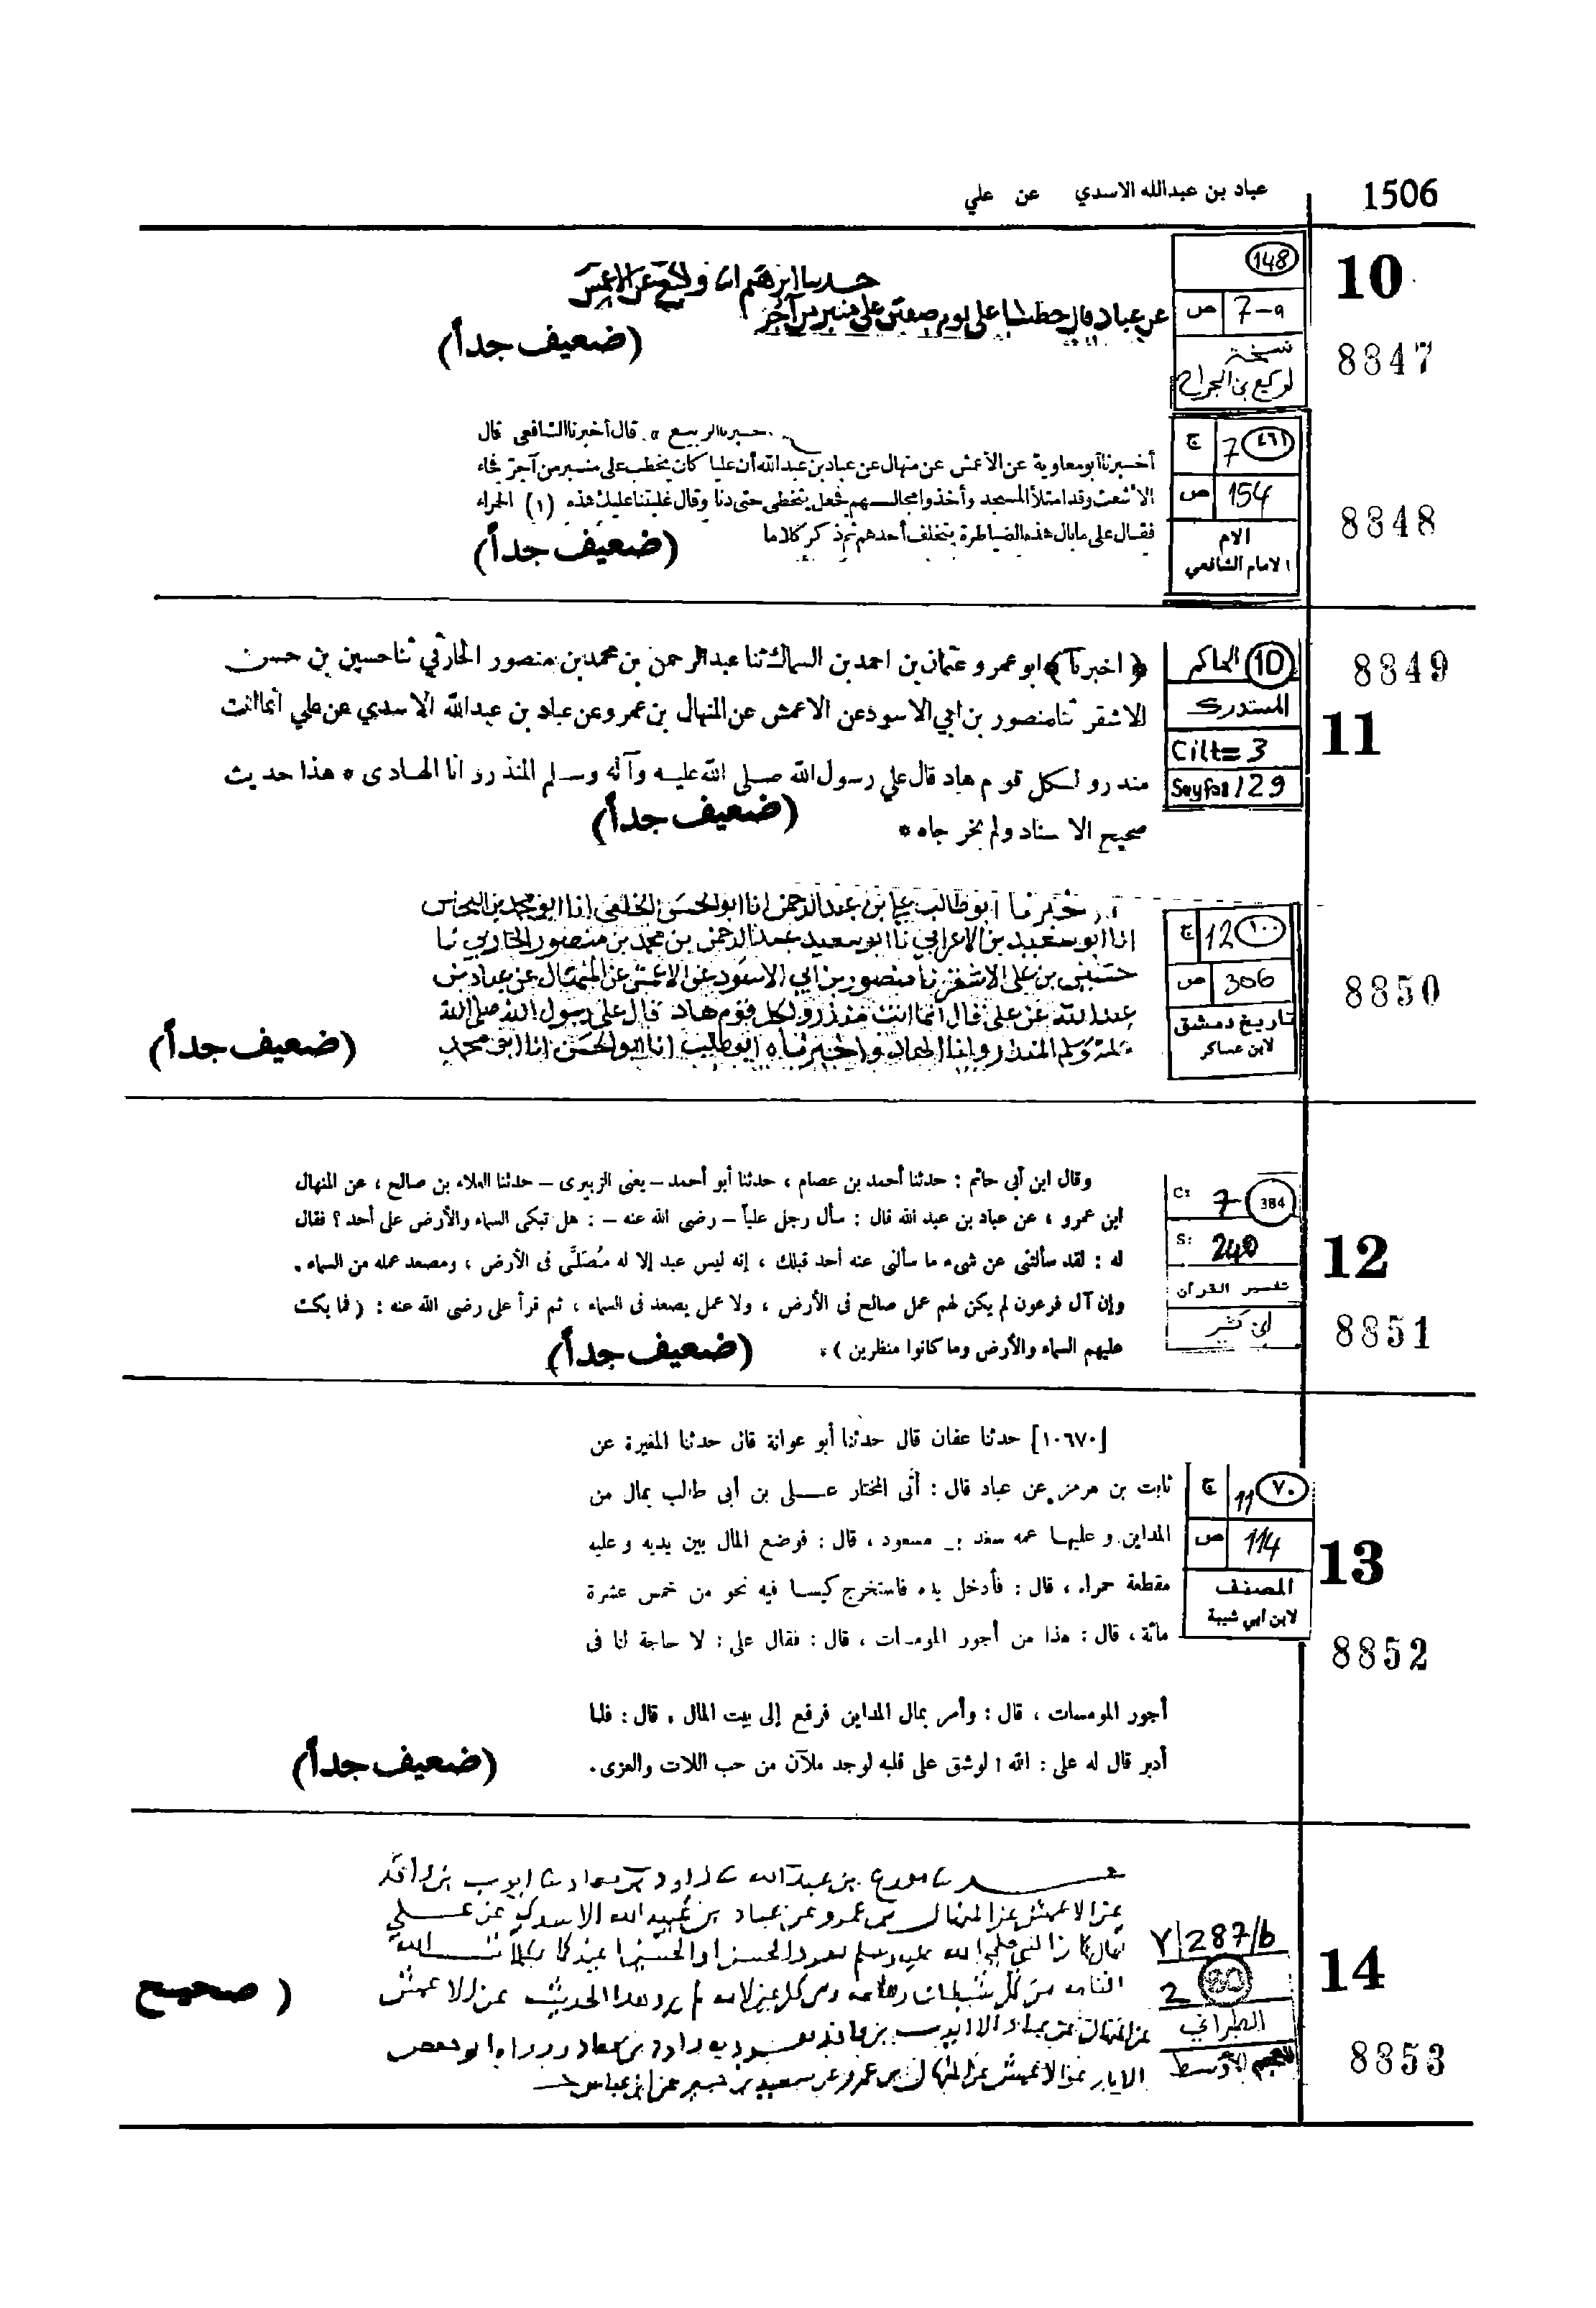 1506
عباد بن عبدالله الاسدي عن علي
10
148
ص 7-a
نسخة
لوكيع بن الجراح
8847
حدثنا ابرهيم انا وكيع عن الاعمش
عن عباد قال خطبنا علي يوم على منبر من آجر
(ضعيف جداً)
ج 7 ٤٦١
ص 154
الام
الامام الشافعي
8848
أخبرنا الربيع قال أخبرنا الشافعي قال
أخبرنا أبو معاوية عن الأعمش عن منهال عن عباد بن عبدالله أن عليا كان يخطب على منبر من آجر فجاء
الأشعث وقد امتلأ المسجد وأخذوا مجالسهم فجعل يتخطى حتى دنا وقال غلبتنا عليك هذه (١) الحمراء
فقال على ما بال هذه الضياطرة يتخلف أحدهم ثم ذكر كلاما
(ضعيف جداً)
10 الحاكم
المستدرك
Cilt= 3
Sayfa= 129
8849
11
﴿ اخبرنا ﴾ ابو عمرو عثمان بن احمد بن السماك ثنا عبد الرحمن بن محمد بن منصور الحارثي ثنا حسين بن حسن
الاشقر ثنا منصور بن ابي الاسود عن الاعمش عن المنهال بن عمرو عن عباد بن عبد الله الاسدي عن علي انما انت
منذر ولكل قوم هاد قال علي رسول الله صلى الله عليه وآله وسلم المنذر وانا الهادى * هذا حديث
صحيح الاسناد ولم يخرجاه *
(ضعيف جداً)
ج 12 ١٠٠
ص 306
تاريخ دمشق
لابن عساكر
8850
اخبرنا ابو طالب علي بن عبد الرحمن انا ابو الحسن الخلعي انا ابو محمد بن النحاس
انا ابو سعيد بن الاعرابي نا ابو سعيد عبد الرحمن بن محمد بن منصور الحارثي نا
حسين بن علي الاشقر نا منصور بن ابي الاسود عن الاعمش عن المنهال عن عباد بن
عبد الله عن علي قال انما انت منذر ولكل قوم هاد قال علي رسول الله صلى الله
عليه وسلم المنذر وانا الهاد واخبرناه ابو طالب انا ابو الحسن انا ابو محمد
(ضعيف جداً)
C: 7 384
S: 240
تفسير القرآن
ابن كثير
12
8851
وقال ابن أبى حاتم : حدثنا أحمد بن عصام ، حدثنا أبو أحمد – يعنى الزبيرى – حدثنا العلاء بن صالح ، عن المنهال
ابن عمرو ، عن عباد بن عبد الله قال : سأل رجل علياً – رضى الله عنه – : هل تبكى السماء والأرض على أحد ؟ فقال
له : لقد سألتنى عن شىء ما سألنى عنه أحد قبلك ، إنه ليس عبد إلا له مُصَلَّى فى الأرض ، ومصعد عمله من السماء .
وإن آل فرعون لم يكن لهم عمل صالح فى الأرض ، ولا عمل يصعد فى السماء ، ثم قرأ على رضى الله عنه : ( فما بكت
عليهم السماء والأرض وما كانوا منظرين ) .
(ضعيف جداً)
ج 11 ٧٠
ص 114
المصنف
لابن ابي شيبة
13
8852
[١٠٦٧٠] حدثنا عفان قال حدثنا أبو عوانة قال حدثنا المغيرة عن
ثابت بن هرمز عن عباد قال : أتى المختار على بن أبى طالب بمال من
المداين و عليها عمه سعد بن مسعود ، قال : فوضع المال بين يديه و عليه
مقطعة حمراء ، قال : فأدخل يده فاستخرج كيسا فيه نحو من خمس عشرة
مائة ، قال : هذا من أجور المومسات ، قال : فقال على : لا حاجة لنا فى
أجور المومسات ، قال : وأمر بمال المداين فرفع إلى بيت المال . قال : فلما
أدبر قال له على : الله ! لو شق على قلبه لوجد ملآن من حب اللات والعزى .
(ضعيف جداً)
Y 287/b
2 80
الطبراني
المعجم الاوسط
14
8853
بن عبد الله ايوب بن واقد
عن الاعمش عن المنهال بن عمرو عن عباد بن عبيد الله الاسدي عن علي
قال كان النبي صلى الله عليه وسلم يعوذ الحسن والحسين اعيذكما بكلمات الله
التامه من كل شيطان وهامه ومن كل عين لامه لم يرو هذا الحديث عن الاعمش
عن المنهال عن عباد الا ايوب بن واقد ورواه ابو حفص
الابار عن الاعمش عن المنهال بن عمرو عن سعيد بن جبير عن ابن عباس
( صحيح